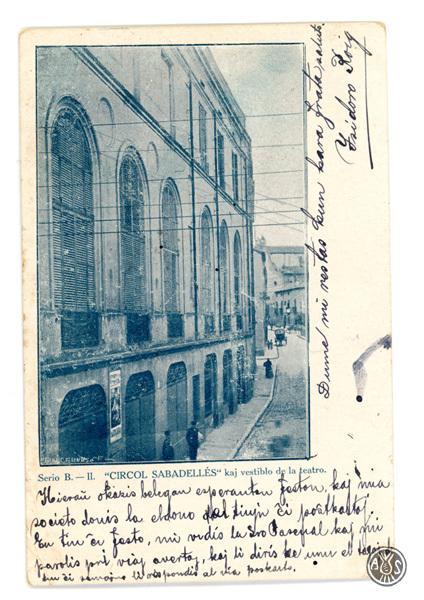 Serio B. — II. "CIRCOL SABADELLÉS" kaj vestiblo de la teatro.
Hieraŭ okazis belegan esperantan feston, kaj nia
societo donis la eldono de tiujn ĉi poŝtkartoj
En tiu ĉi festo, mi vidis la Sro Pascual kaj mi
parolis pri viaj avertoj, kaj li diris ke unu el
tiu ĉi semajno li respondis al via poŝkarto.
Dume mi restas kun kara frata saluto.
Isidoro Roig